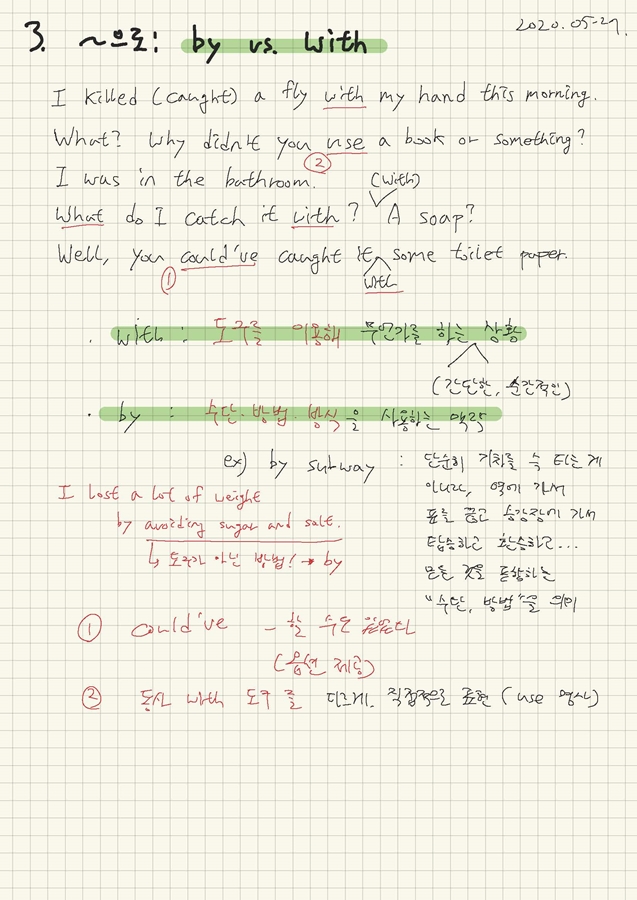 2020.05.27.
3. ~으로: by vs. with
I killed (caught) a fly with my hand this morning.
What? Why didn't you use a book or something?
②
I was in the bathroom.
(with)
What do I catch it with? A soap?
Well, you could've caught it some toilet paper.
① with
· with : 도구를 이용해 무언가를 하는 상황
(간단한, 순간적인)
· by : 수단·방법·방식을 사용하는 맥락
ex) by subway : 단순히 기차를 슥 타는게
아니라, 역에 가서
표를 끊고 승강장에 가서
탑승하고 환승하고...
모든 것을 포함하는
"수단, 방법"을 의미
I lost a lot of weight
by avoiding sugar and salt.
↳ 도구가 아닌 방법! → by
① could've - 할 수도 있었다
(옵션 제공)
② 동사 with 도구를 다르게. 직접적으로 표현 (use 명사)